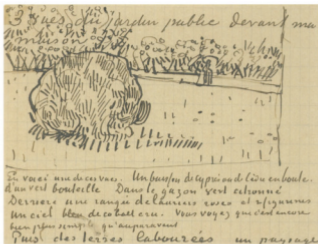 3 vues du jardin public devant ma
maison
En voici une de ces vues. Un buisson de cyprès et de cèdre en boule.
d'un vert bouteille Dans le gazon vert citronné
Derrière une rangée de lauriers roses et
un ciel bleu de cobalt cru. Vous voyez que c'est encore
bien plus simple qu'auparavant
Puis des terres labourées un paysage